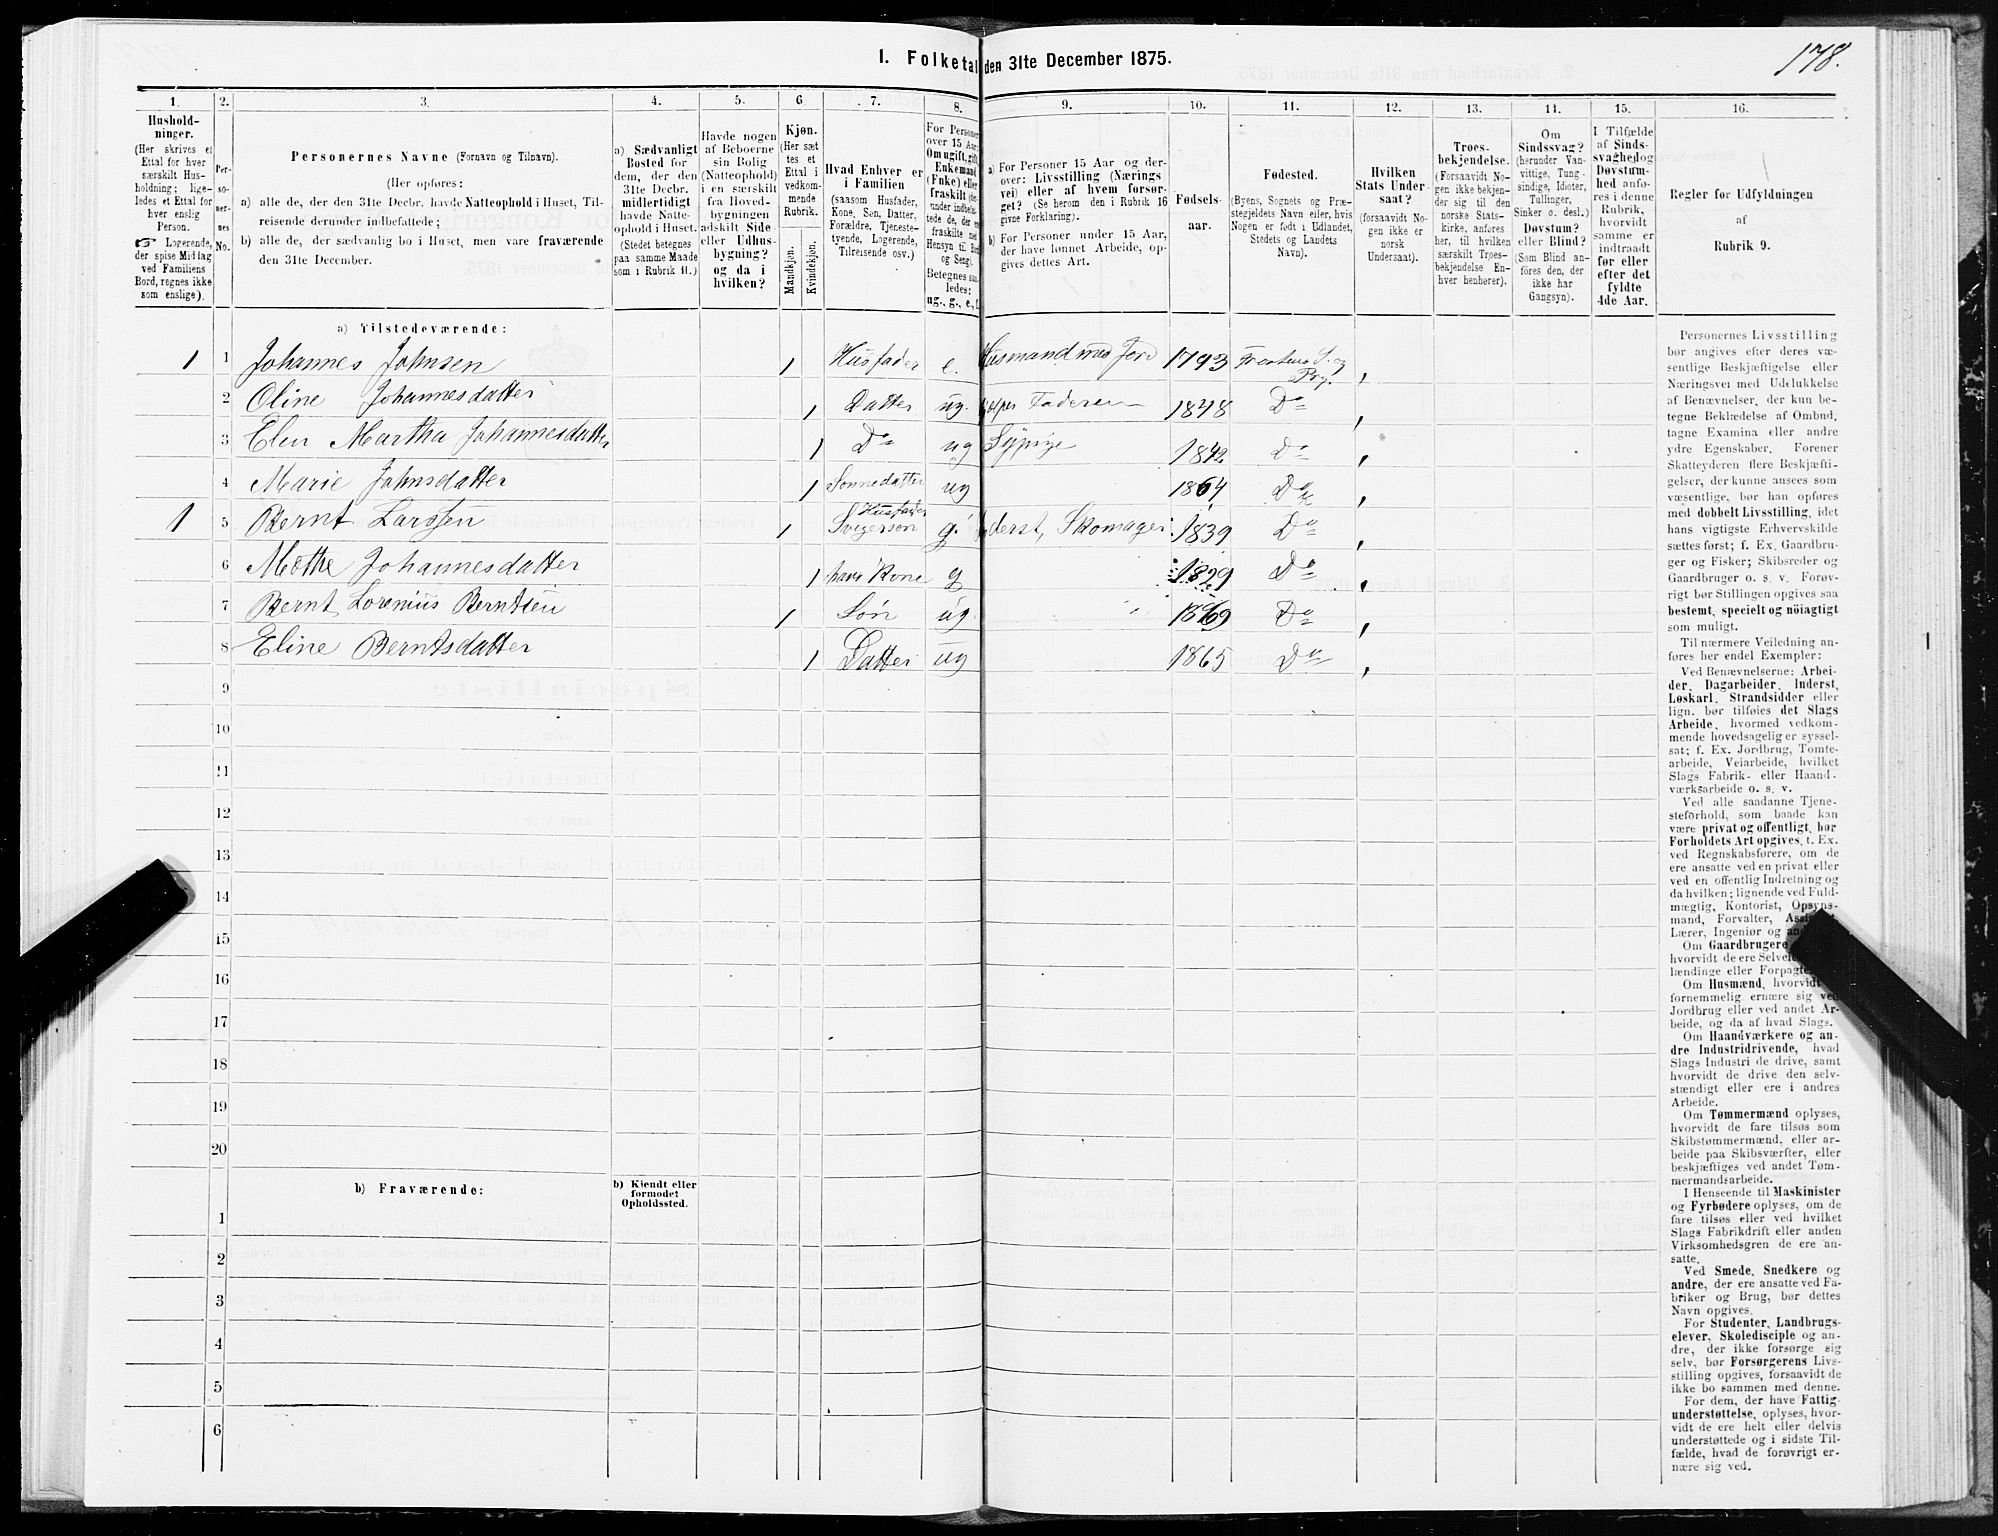 178.
1. Folketal den 31te December 1875.
1. 2. 3. 4. 5. 6 7. 8. 9. 10. 11. 12. 13. 14. 15. 16.
Hushold-
ninger.
(Her skrives et
Ettal for hver
særskilt Hus-
holdning; lige-
ledes et Ettal for
hver enslig
Person.
☞ Logerende,
der spise Middag
ved Familiens
Bord, regnes ikke
som enslige).
Per-
so-
ner-
nes
No.
Personernes Navne (Fornavn og Tilnavn).
(Her opføres:
a) alle de, der den 31te Decbr. havde Natteophold i Huset, Til-
reisende derunder indbefattede;
b) alle de, der sædvanlig bo i Huset, men vare fraværende
den 31te December.
a) Sædvanligt
Bosted for
dem, der den
31te Decbr.
midlertidigt
havde Natte-
ophold i Huset.
(Stedet betegnes
paa samme Maade
som i Rubrik 11.)
Havde nogen
af Beboerne
sin Bolig
(Natteophold)
i en særskilt
fra Hoved-
bygningen
adskilt Side-
eller Udhus-
bygning?
og da i
hvilken?
Kjøn.
(Her sæt
tes et
Ettal i
vedkom-
mende
Rubrik.
Mandkjøn.
Kvindekjøn.
Hvad Enhver er
i Familien
(saasom Husfader,
Kone, Søn, Datter,
Forældre, Tjeneste-
tyende, Logerende,
Tilreisende osv.)
For Personer
over 15 Aar:
Om ugift, gift,
Enkemand
(Enke) eller
fraskilt (der-
under indbefat-
tede de, der ere
fraskilte med
Hensyn til Bord
og Seng).
Betegnes saa-
ledes:
ug., g., e., f.
a) For Personer 15 Aar og der-
over: Livsstilling (Nærings
vei) eller af hvem forsør-
get? (Se herom den i Rubrik 16
givne Forklaring).
b) For Personer under 15 Aar,
der have lønnet Arbeide, op-
gives dettes Art.
Fødsels-
aar.
Fødested.
(Byens, Sognets og Præ-
stegjeldets Navn eller, hvis
Nogen er født i Udlandet,
Stedets og Landets
Navn).
Hvilken
Stats Under-
saat?
(forsaavidt No-
gen ikke er
norsk
Undersaat).
Troes-
bekjendelse.
(Forsaavidt No-
gen ikke bekjen-
der sig til den
norske Stats-
kirke, anføres
her, til hvilken
særskilt Troes-
bekjendelse En-
hver henhører).
Om
Sindssvag?
(herunder Van-
vittige, Tung-
sindige, Idioter,
Tullinger,
Sinker o. desl.)
Døvstum?
eller Blind?
(Som Blind an-
føres den, der
ikke har
Gangsyn).
I Tilfælde
af Sinds-
svaghed og
Døvstum-
hed anfø-
res i denne
Rubrik,
hvorvidt
samme er
indtraadt
før eller
efter det
fyldte
4de Aar.
Regler før Udfyldningen
af
Rubrik 9.
a) Tilstedeværende:
1 1 Johannes Johnsen 1 Husfader e. Husmand med Jord 1793 S. og Prg.
2 Oline Johannesdatter 1 Datter ug. Faderen 1848 Do
3 Elen Martha Johannesdatter 1 Do ug Sypige 1842 Do
4 Marie Johnsdatter 1 Sønnedatter ug 1864 Do
1 5 Bernt Larssen 1 Husfader Svigersøn g. Inderst, Skomager 1839 Do
6 Johannesdatter 1 hans Kone g 1829 Do
7 Bernt Lorenius Berntsen 1 Søn ug. " 1869 Do
8 Eline Berntsdatter 1 Datter ug 1865 Do
9
10
11
12
13
14
15
16
17
18
19
20
b) Fraværende:
b) Kjendt eller
formodet
Opholdssted.
1
2
3
4
5
6
Personernes Livsstilling
bør angives efter deres væ-
sentlige Beskjæftigelse eller
Næringsvei med Udelukkelse
af Benævnelser, der kun be-
tegne Beklædelse af Ombud,
tagne Examina eller andre
ydre Egenskaber. Forener
Skatteyderen flere Beskjæfti-
gelser, der kunne ansees som
væsentlige, bør han opføres
med dobbelt Livsstilling, idet
hans vigtigste Erhvervskilde
sættes først; f. Ex. Gaardbru-
ger og Fisker; Skibsreder og
Gaardbruger o. s. v. Forøv-
rigt bør Stillingen opgives saa
bestemt, specielt og nöiagtigt
som muligt.
Til nærmere Veiledning an-
føres her endel Exempler:
Ved Benævnelserne: Arbei-
der, Dagarbeider, Inderst,
Løskarl, Strandsidder eller
lign. bør tilføies det Slags
Arbeide, hvormed vedkom-
mende hovedsagelig er syssel-
sat; f. Ex. Jordbrug, Tomte-
arbeide, Veiarbeide, hvilket
Slags Fabrik- eller Haand-
værksarbeide o. s. v.
Ved alle saadanne Tjene-
steforhold, som baade kan
være privat og offentligt, bør
Forholdets Art opgives, f. Ex.
ved Regnskabsførere, om de
ere ansatte ved en privat eller
ved en offentlig Indretning og
da hvilken; lignende ved Fuld-
mægtig, Kontorist, Opsyns-
mand, Forvalter,
Lærer, Ingeniør og
Om Gaardbrugere
hvorvidt de ere
lændinge eller
Om Husmænd, hvorvidt
fornemmelig ernære sig ved
Jordbrug eller ved andet Ar-
beide, og da af hvad Slags.
Om Haandværkere og an-
dre Industridrivende, hvad
Slags Industri de drive, samt
hvorvidt de drive den selv-
stændigt eller ere i andres
Arbeide.
Om Tømmermænd oplyses,
hvorvidt de fare tilsøs som
Skibstømmermænd, eller ar-
beide paa Skibsværfter, eller
beskjæftiges ved andet Tøm-
mermandsarbeide.
I Henseende til Maskinister
og Fyrbødere oplyses, om de
fare tilsøs eller ved hvilket
Slags Fabrikdrift eller anden
Virksomhedsgren de ere an-
satte.
Ved Smede, Snedkere og
andre, der ere ansatte ved Fa-
briker og Brug, bør dettes
Navn opgives.
For Studenter, Landbrugs-
elever, Skoledisciple og an-
dre, der ikke forsørge sig
selv, bør Forsørgerens Livs-
stilling opgives, forsaavidt de
ikke bo sammen med denne.
For dem, der have Fattig-
understøttelse, oplyses, hvor-
vidt de ere helt eller delvis
understøttede og i sidste Til-
fælde, hvad de forøvrigt er-
nære sig ved.